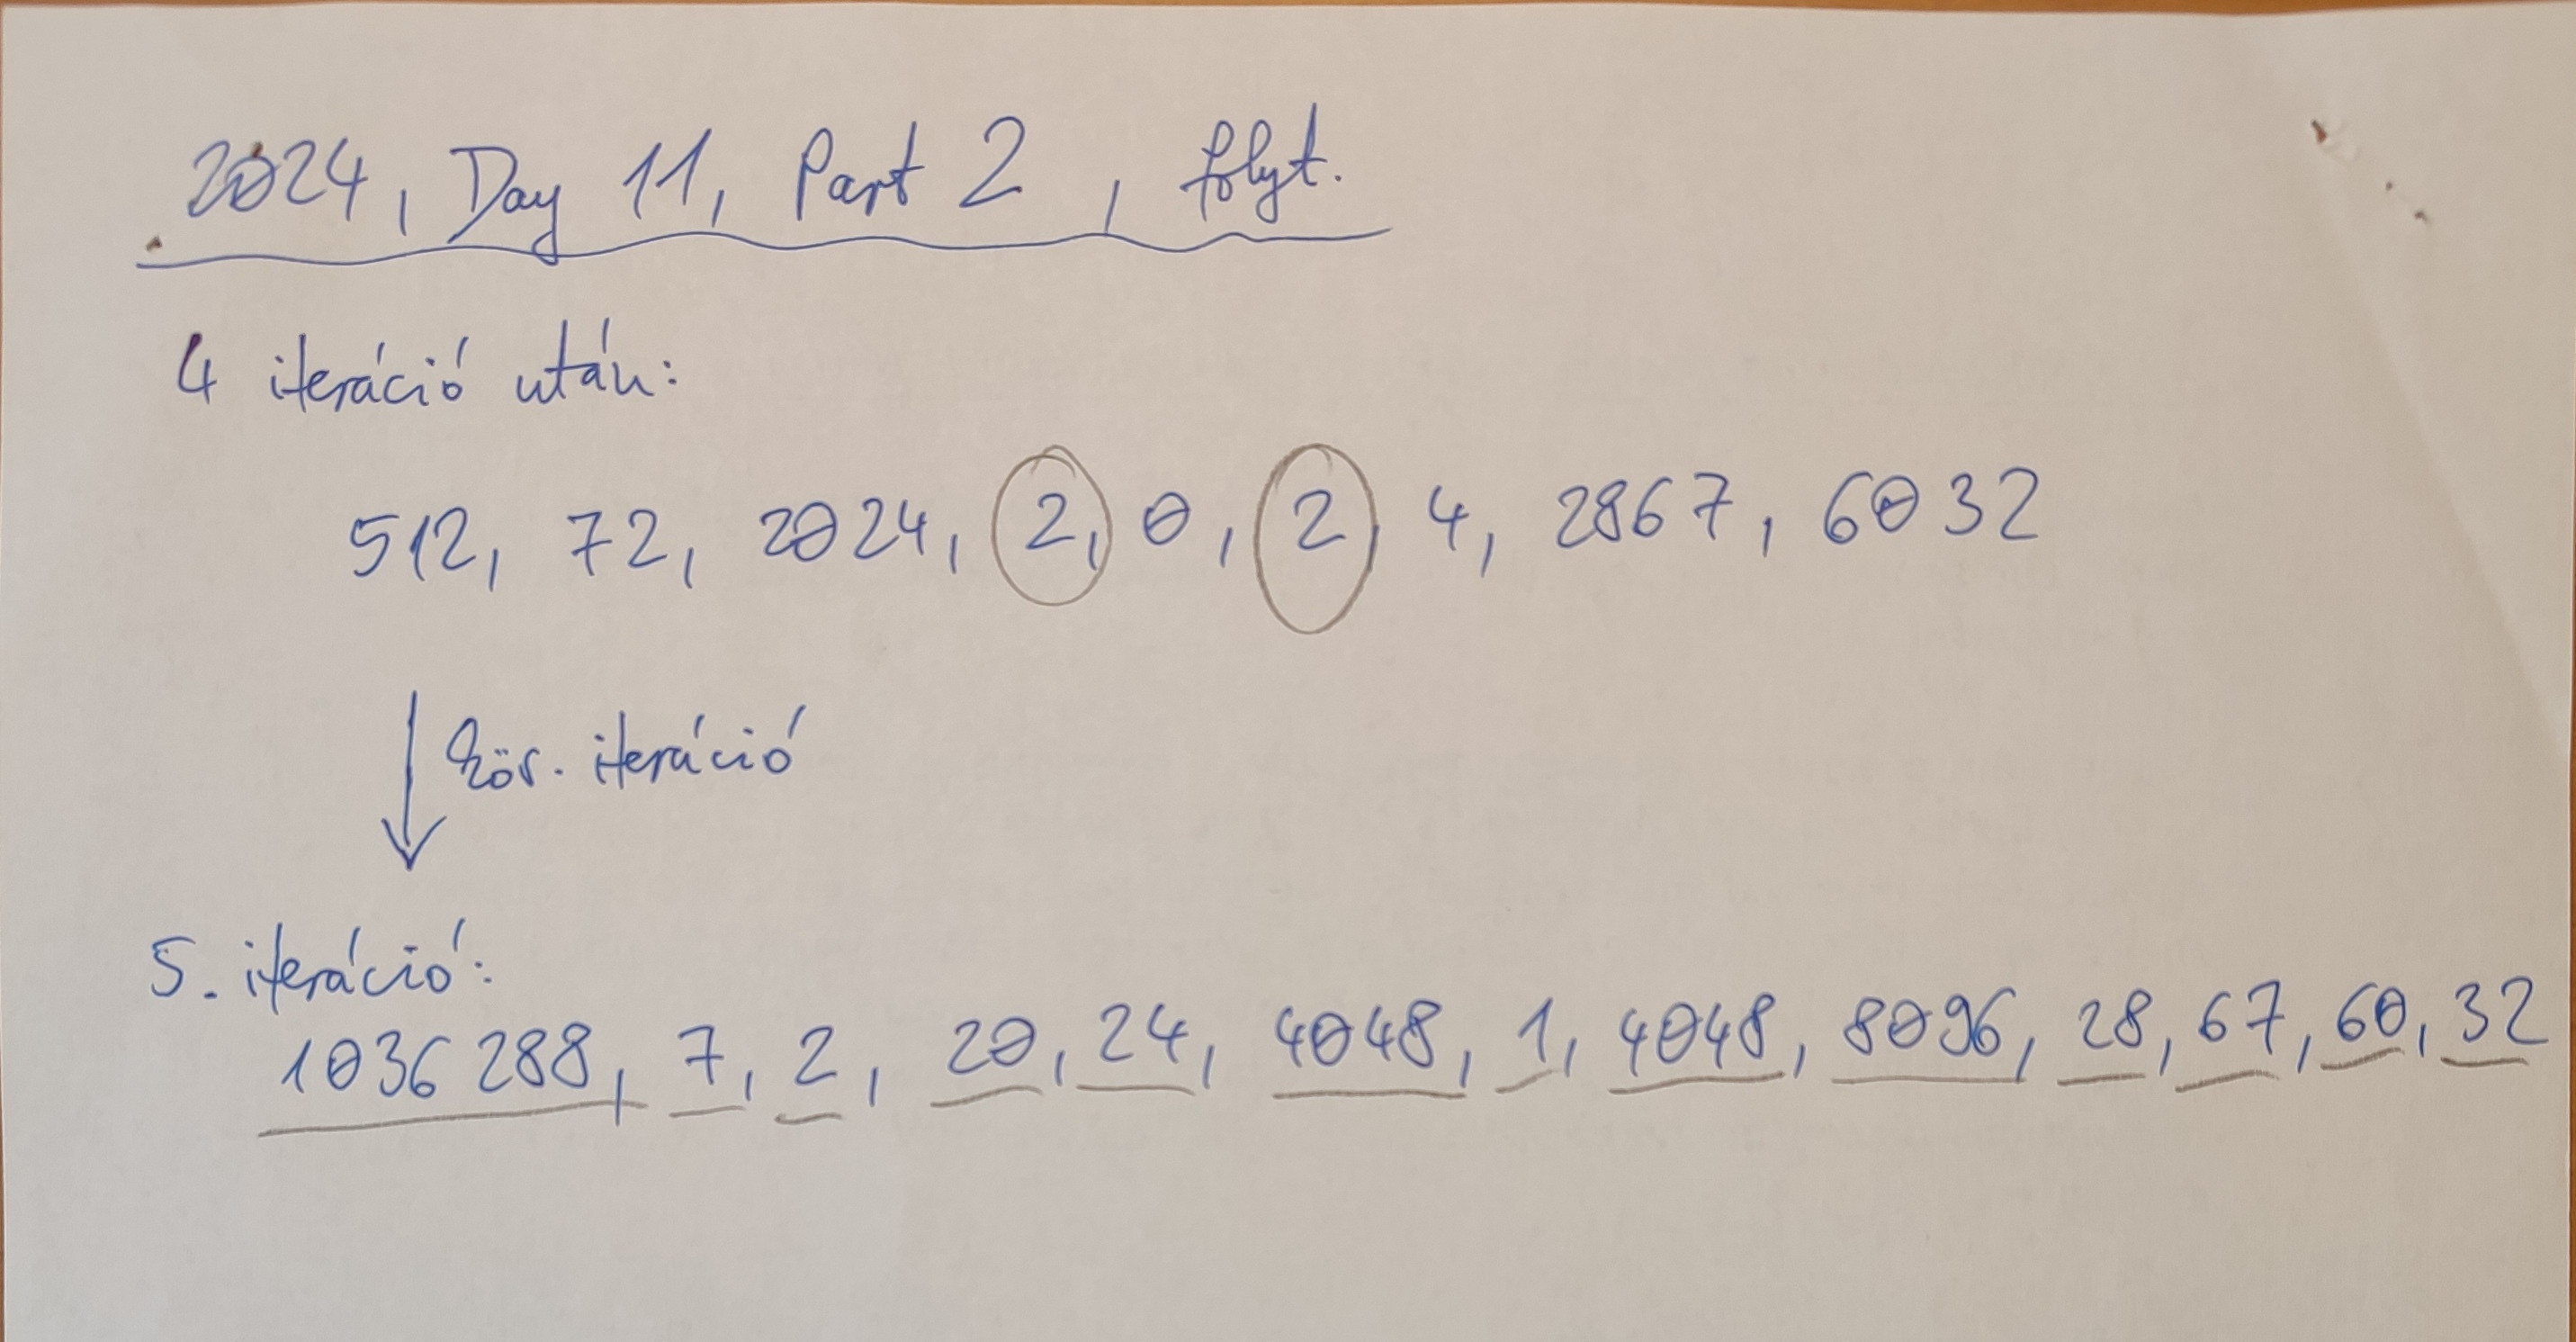 2024, Day 11, Part 2, folyt.
4 iteráció után:
512, 72, 2024, 2, 0, 2, 4, 2867, 6032
köv. iteráció
5. iteráció:
1036288, 7, 2, 20, 24, 4048, 1, 4048, 8096, 28, 67, 60, 32